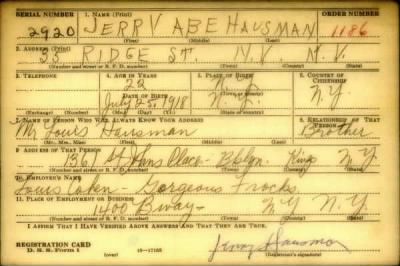 SERIAL NUMBER 1. NAME (Print) ORDER NUMBER
2920 JERRY ABE HAUSMAN 1186
(First) (Middle) (Last)
2. ADDRESS (Print)
38 RIDGE ST. N.Y. N.Y.
(Number and street or R. F. D. number) (Town) (County) (State)
3. TELEPHONE 4. AGE IN YEARS 5. PLACE OF BIRTH 6. COUNTRY OF CITIZENSHIP
22 N.Y.
DATE OF BIRTH
July 25, 1918 N.Y. N.Y.
(Exchange) (Number) (Mo.) (Day) (Yr.) (State or country)
7. NAME OF PERSON WHO WILL ALWAYS KNOW YOUR ADDRESS 8. RELATIONSHIP OF THAT PERSON
Mr Louis Hausman Brother
(Mr., Mrs., Miss) (First) (Middle) (Last)
9. ADDRESS OF THAT PERSON
1361 St Johns Place - Bklyn. Kings N.Y.
(Number and street or R. F. D. number) (Town) (County) (State)
10. EMPLOYER'S NAME
Louis Cohen - Gorgeous Frocks
11. PLACE OF EMPLOYMENT OR BUSINESS
1400 Bway - N Y N.Y.
(Number and street or R. F. D. number) (Town) (County) (State)
I AFFIRM THAT I HAVE VERIFIED ABOVE ANSWERS AND THAT THEY ARE TRUE.
REGISTRATION CARD
D. S. S. Form 1 (over) Jerry Hausman
(Registrant's signature)